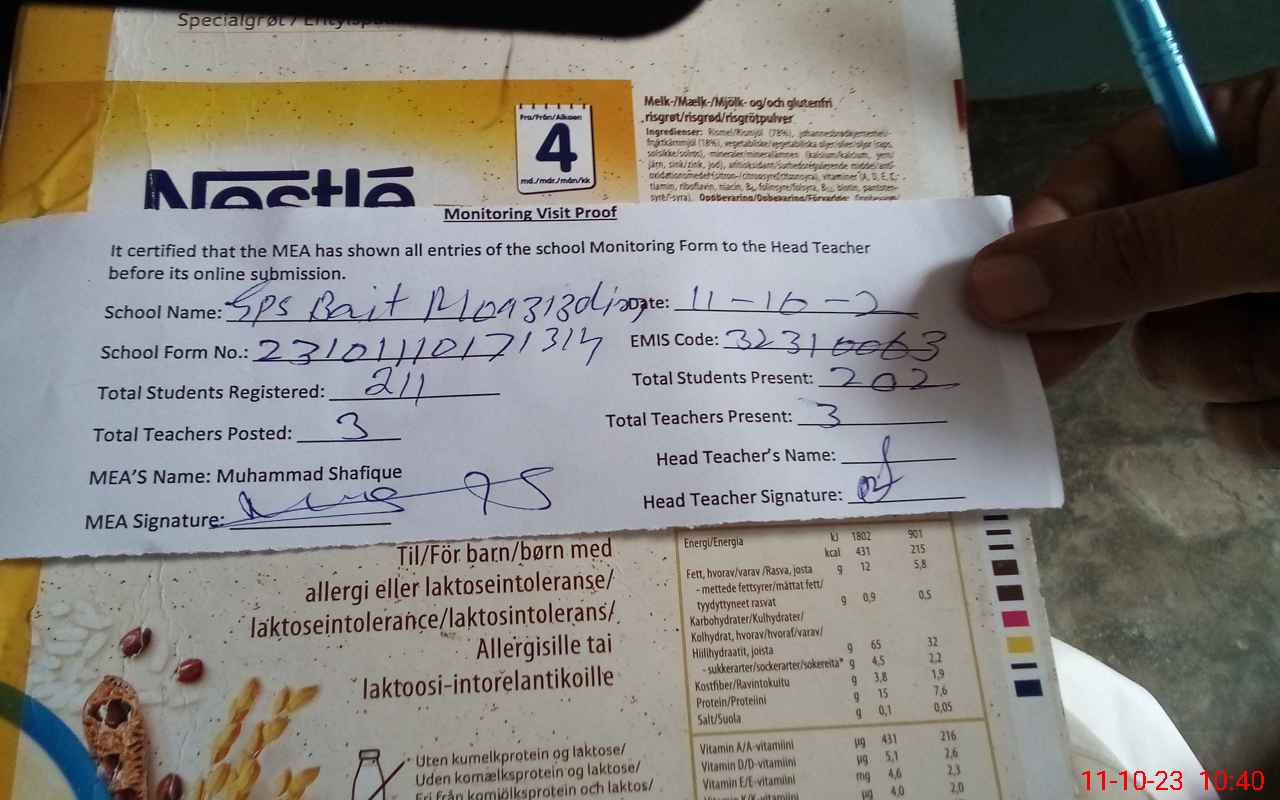 Specialgrøt /
Nestlé
Fra/Från/Alkaen
4
md./mdr./mån/kk
Melk-/Mælk-/Mjölk- og/och glutenfri
risgrøt/risgrød/risgrötpulver
Monitoring Visit Proof
It certified that the MEA has shown all entries of the school Monitoring Form to the Head Teacher
before its online submission.
School Name: Gps Bait
Date: 11-10-2
School Form No.: 2310111017 1314
EMIS Code: 32310063
Total Students Registered: 211
Total Students Present: 202
Total Teachers Posted: 3
Total Teachers Present: 3
MEA'S Name: Muhammad Shafique
Head Teacher's Name:
MEA Signature:
Head Teacher Signature:
Til/För barn/børn med
allergi eller laktoseintoleranse/
laktoseintolerance/laktosintolerans/
Allergisille tai
laktoosi-intorelantikoille
Uten kumelkprotein og laktose/
Uden komælksprotein og laktose/
Fri från komjölksprotein och laktos/
Energi/Energia kJ 1802 901
kcal 431 215
Fett, hvorav/varav /Rasva, josta g 12 5,8
- mettede fettsyrer/mättat fett/
tyydyttyneet rasvat g 0,9 0,5
Karbohydrater/Kulhydrater/
Kolhydrat, hvorav/hvoraf/varav/
Hiilihydraatit, joista g 65 32
- sukkerarter/sockerarter/sokereita* g 4,5 2,2
Kostfiber/Ravintokuitu g 3,8 1,9
Protein/Proteiini g 15 7,6
Salt/Suola g 0,1 0,05
Vitamin A/A-vitamiini µg 431 216
Vitamin D/D-vitamiini µg 5,1 2,6
Vitamin E/E-vitamiini mg 4,6 2,3
µg 4,0 2,0
11-10-23 10:40